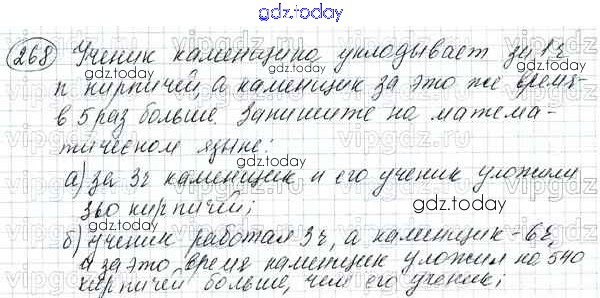 gdz.today
268 Ученик каменщика укладывает за 1 ч
gdz.today
n кирпичей, а каменщик за это же время -
в 5 раз больше. Запишите на матема-
тическом языке:
gdz.today
а) за 3ч каменщик и его ученик уложили
360 кирпичей;
gdz.today
б) ученик работал 3ч, а каменщик - 6ч,
а за это время каменщик уложил на 540
gdz.today
кирпичей больше, чем его ученик;